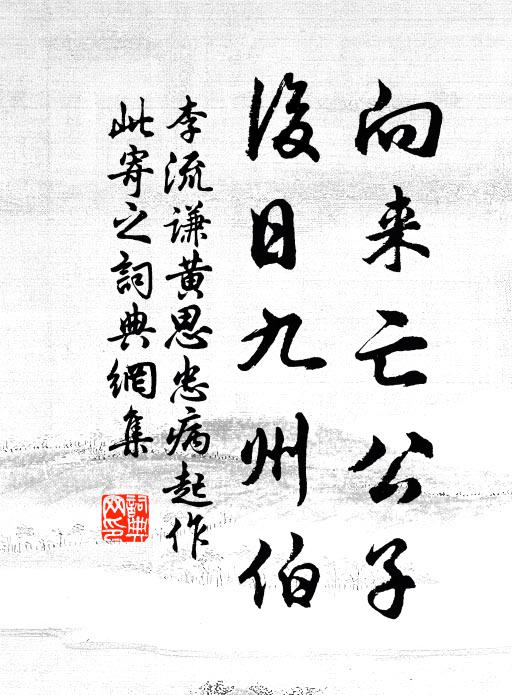 向来亡公子
後日九州伯
李流谦黄思忠病起作
此寄之詞典網集
詞典
网印